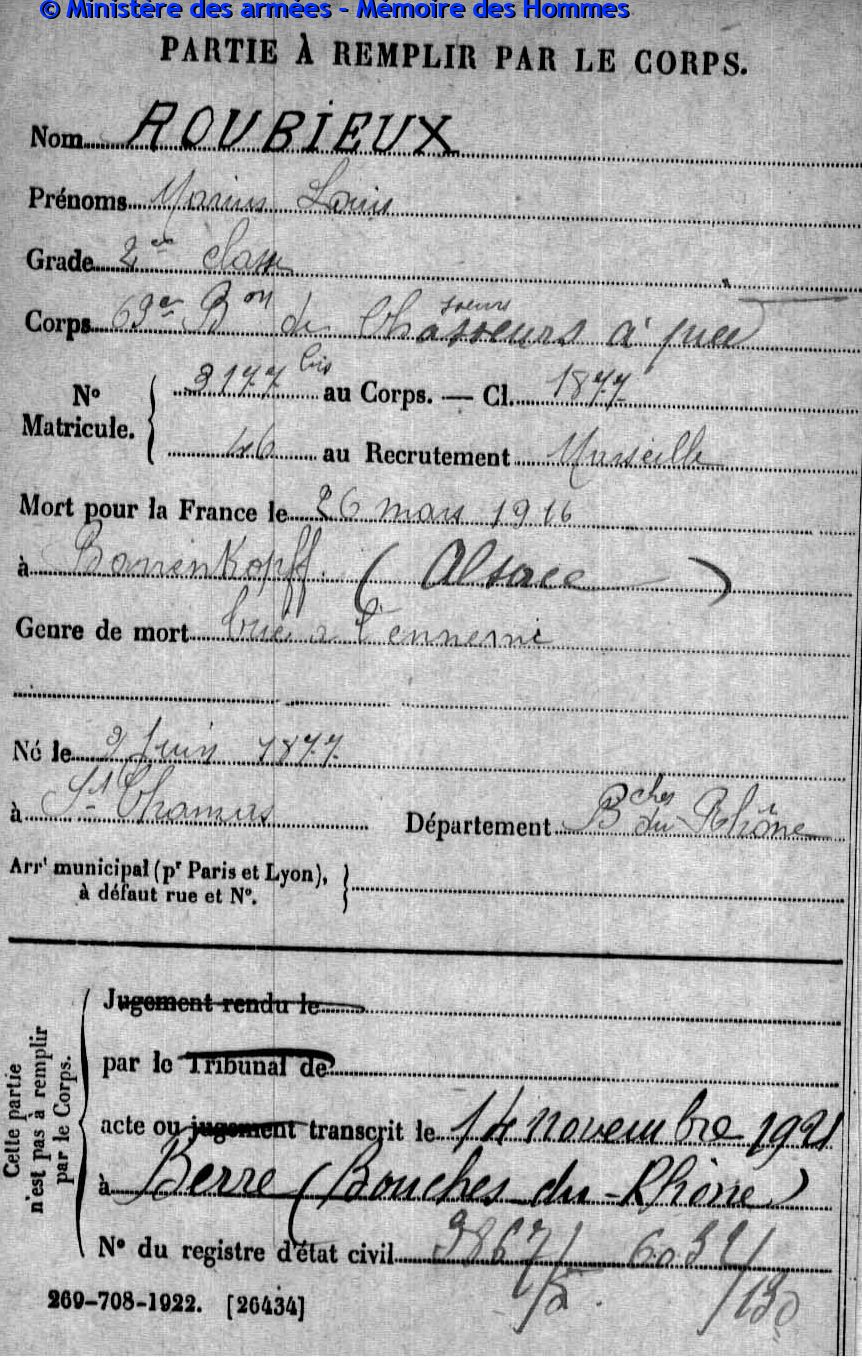 © Ministère des armées - Mémoire des Hommes
PARTIE À REMPLIR PAR LE CORPS.
Nom ROUBIEUX
Prénoms Marius Louis
Grade 2me classe
Corps 63e Bon de Chasseurs à pied
No Matricule. { 3177 bis au Corps. — Cl. 1877
46 au Recrutement Marseille
Mort pour la France le 26 mars 1916
à Barrenkopff. (Alsace)
Genre de mort tué à l'ennemi
Né le 9 Juin 1877
à St Chamas Département Bches du Rhône
Arrt municipal (pr Paris et Lyon),
à défaut rue et No.
Cette partie
n'est pas à remplir
par le Corps.
Jugement rendu le
par le Tribunal de
acte ou jugement transcrit le 14 novembre 1921
à Berre (Bouches-du-Rhône)
No du registre d'état civil 9867/
269-708-1922. [26434]